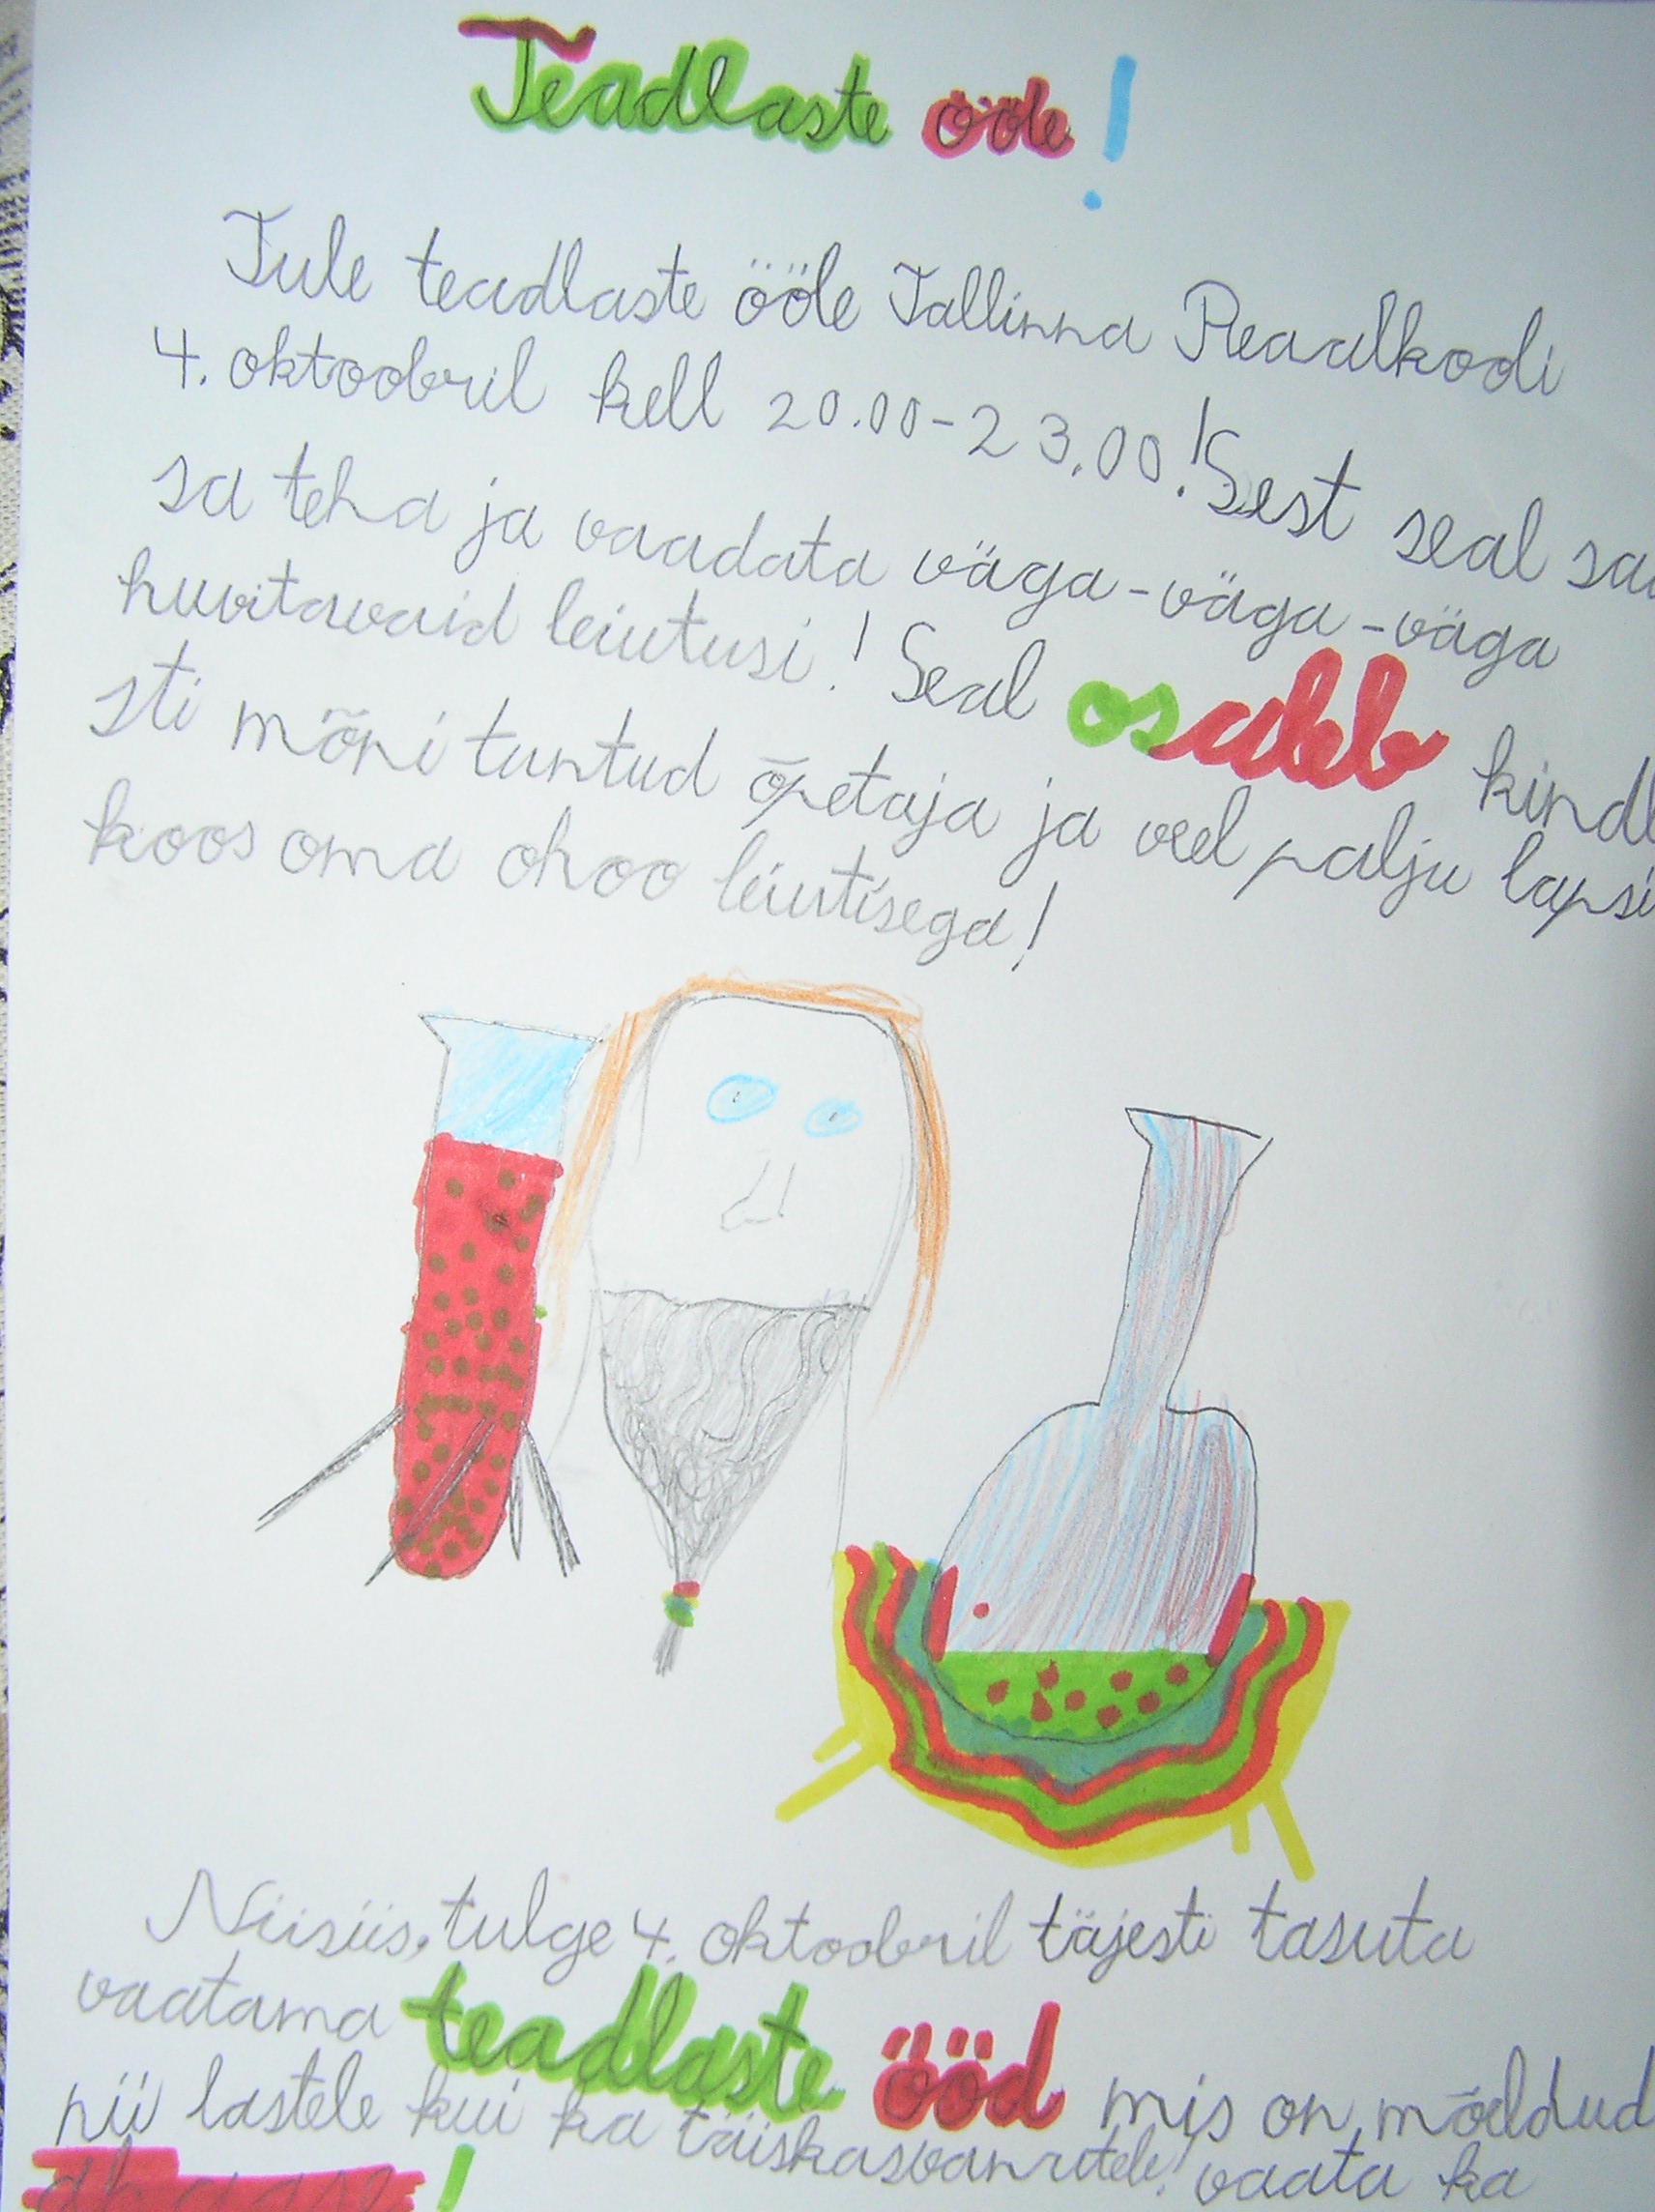 Teadlaste ööle!
Tule teadlaste ööle Tallinna Reaalkodi
4. oktoobril kell 20.00-23.00! Sest seal saa
sa teha ja vaadata väga-väga-väga
huvitavaid leiutusi! Seal osaleb kindl
sti mõni tuntud õpetaja ja veel palju lapsi
koos oma ohoo leiutisega!
Niisiis, tulge 4. oktoobril täjesti tasuta
vaatama teadlaste ööd mis on mõeldud
nii lastele kui ka täiskasvanutele! vaata ka
!